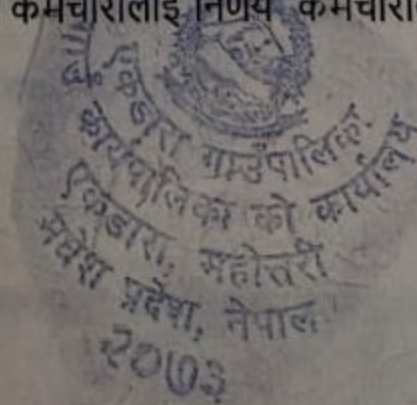 कर्मचारीलाई निर्णय कर्मचारी
एकडारा गाउँपालिका
कार्यपालिका को कार्यालय
एकडारा, महोत्तरी
मधेश प्रदेश, नेपाल
२०७३